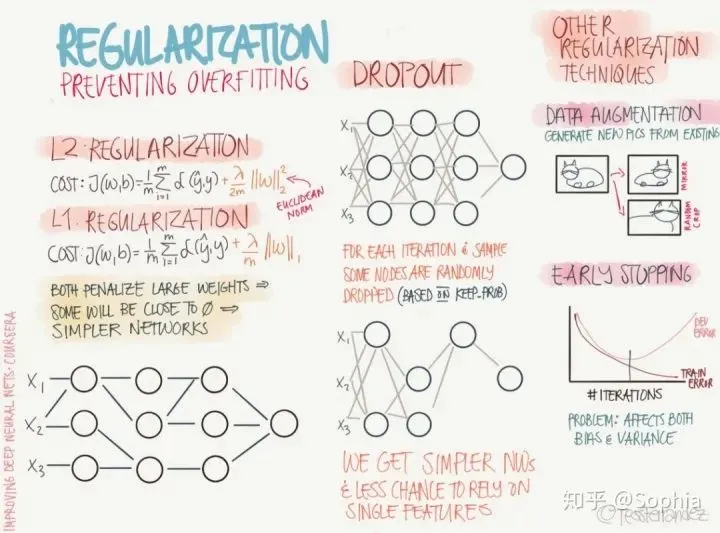 REGULARIZATION
PREVENTING OVERFITTING
L2·REGULARIZATION
COST: J(w,b)=1/m ∑_{i=1}^{m} L(ŷ,y)+ λ/2m ||w||₂²
EUCLIDEAN
NORM
L1·REGULARIZATION
COST: J(w,b)=1/m ∑_{i=1}^{m} L(ŷ,y)+ λ/m ||w||₁
BOTH PENALIZE LARGE WEIGHTS ⇒
SOME WILL BE CLOSE TO Ø ⇒
SIMPLER NETWORKS
X₁
X₂
X₃
IMPROVING DEEP NEURAL NETS · COURSERA
DROPOUT
X₁
X₂
X₃
FOR EACH ITERATION & SAMPLE
SOME NODES ARE RANDOMLY
DROPPED (BASED ON KEEP_PROB)
X₁
X₂
X₃
WE GET SIMPLER NWs
& LESS CHANCE TO RELY ON
SINGLE FEATURES
OTHER
REGULARIZATION
TECHNIQUES
DATA AUGMENTATION
GENERATE NEW PICS FROM EXISTING
MIRROR
RANDOM
CROP
EARLY STOPPING
DEV
ERROR
TRAIN
ERROR
# ITERATIONS
PROBLEM: AFFECTS BOTH
BIAS & VARIANCE
知乎 @Sophia